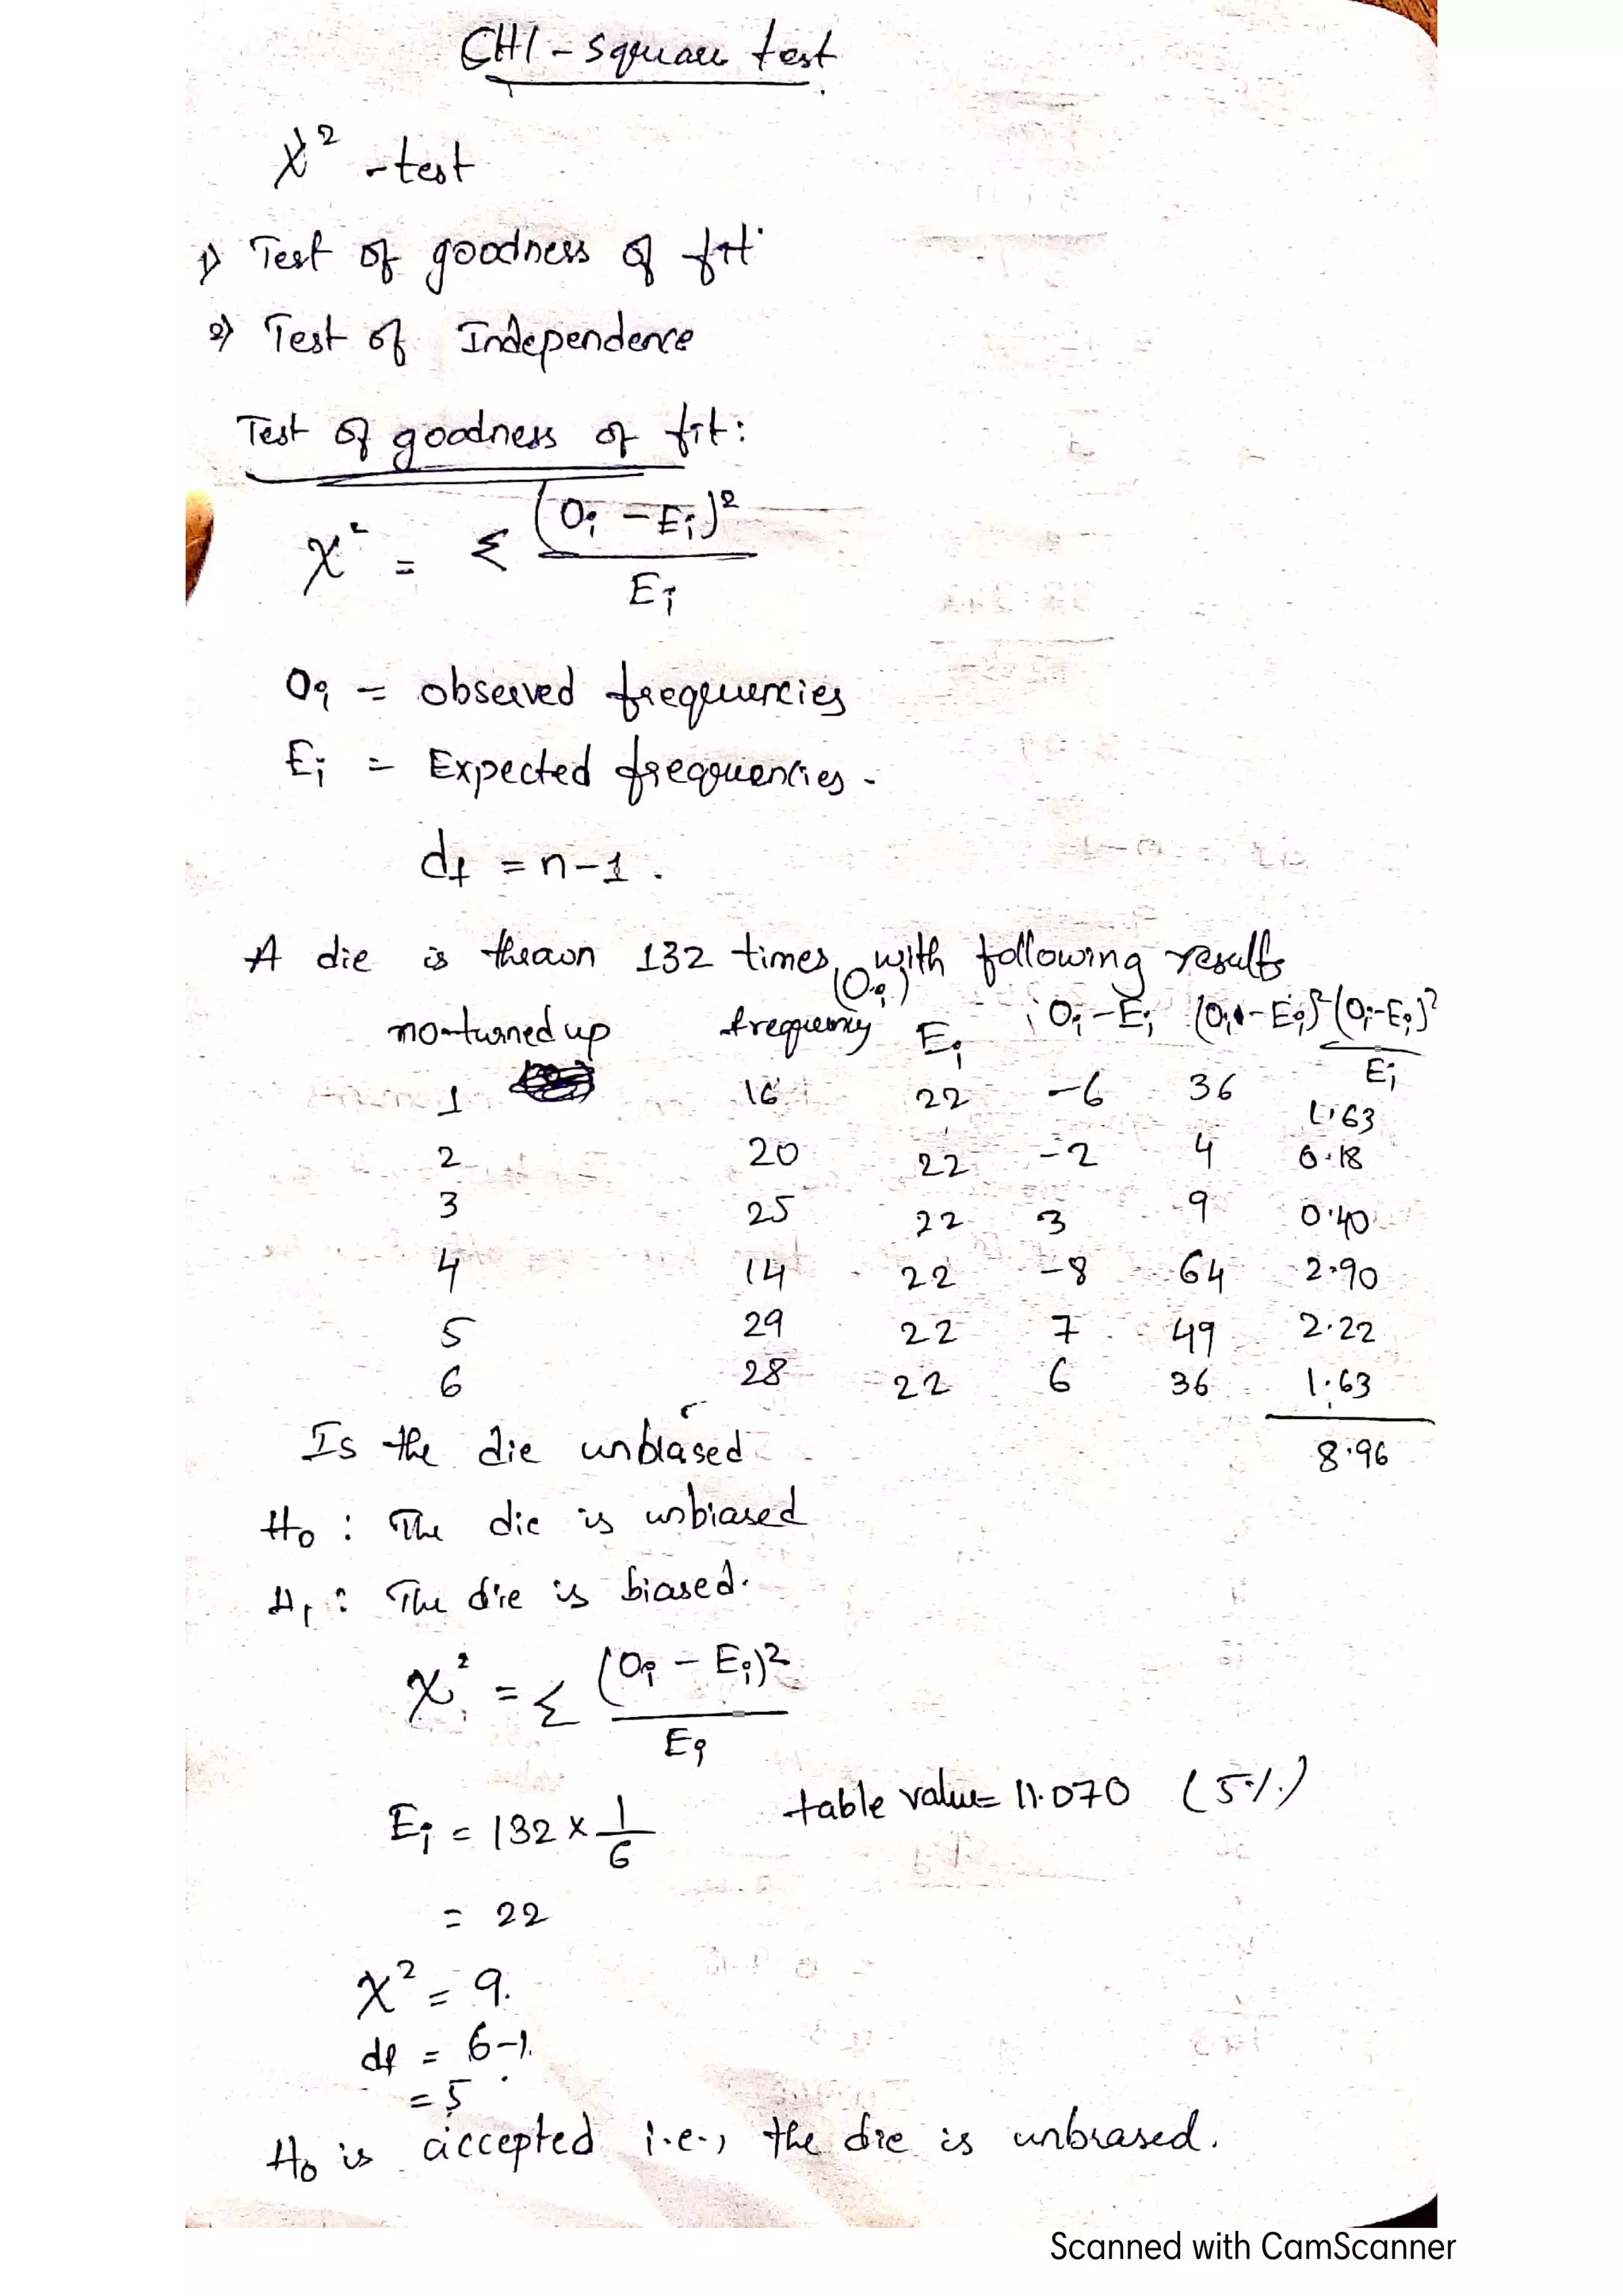 CHI - square test
χ² - test
1) Test of goodness of fit
2) Test of Independence
Test of goodness of fit :
χ² = Σ (Oi - Ei)² / Ei
Oi = observed frequencies
Ei = Expected frequencies -
df = n-1 .
A die is thrown 132 times with following results
no-turned up frequency (Oi) Ei Oi - Ei (Oi - Ei)² (Oi-Ei)² / Ei
1 16 22 -6 36 1.63
2 20 22 -2 4 0.18
3 25 22 3 9 0.40
4 14 22 -8 64 2.90
5 29 22 7 49 2.22
6 28 22 6 36 1.63
Is the die unbiased 8.96
H₀ : The die is unbiased
H₁ : The die is biased.
χ² = Σ (Oi - Ei)² / Ei
Ei = 132 × 1/6 table value = 11.070 (5%)
= 22
χ² = 9.
df = 6-1.
= 5
H₀ is accepted i.e., the die is unbiased.
Scanned with CamScanner